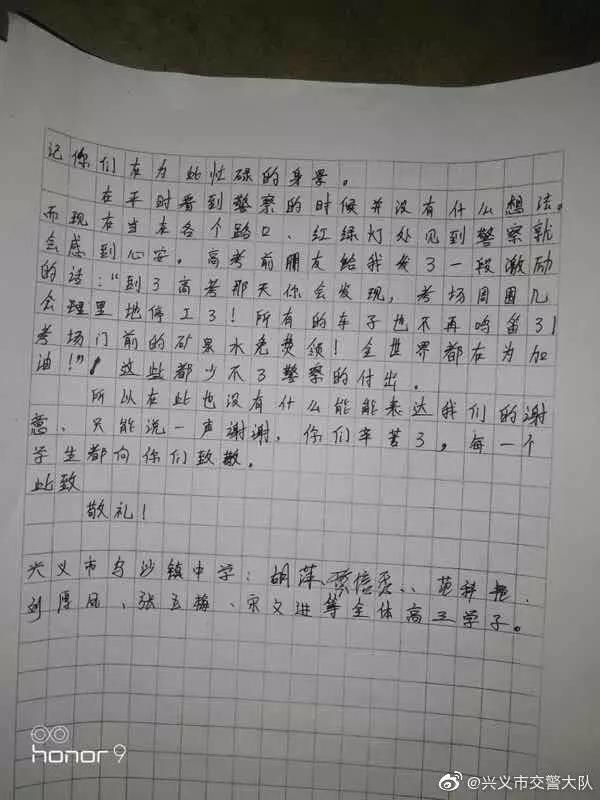 记你们在为此忙碌的身景。
在平时看到警察的时候并没有什么想法。
而现在当在各个路口、红绿灯处见到警察就
会感到心安。高考前朋友给我发了一段激励
的话:“到了高考那天你会发现,考场周围几
公里里地停工了!所有的车子也不再鸣笛了!
考场门前的矿泉水免费领!全世界都在为加
油!”这些都少不了警察的付出。
所以在此也没有什么能能表达我们的谢
意、只能说一声谢谢,你们辛苦了,每一个
学生都向你们致敬。
此致
敬礼!
兴义市乌沙镇中学:胡萍、信、范
刘厚凤、张玉梅、宋文进等全体高三学子。
honor 9
@兴义市交警大队